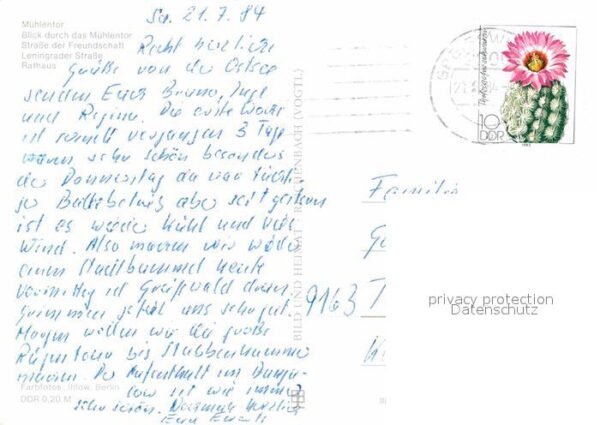 Mühlentor
Blick durch das Mühlentor
Straße der Freundschaft
Leningrader Straße
Rathaus
Sa. 21.7.84
Recht herzliche
Grüße von der Ostsee
senden Euch Bruno, Inge
und Regina. Die erste Woche
ist schnell vergangen 3 Tage
waren sehr schön besonders
der Donnerstag da war
Badebetrieb aber seit gestern
ist es wieder kühl und viel
Wind. Also machen wir wieder
einen Stadtbummel heute
Vormittag ist Greifswald dran.
Grimmen gefiel uns sehr gut.
Morgen wollen wir die große
Rügentour bis Stubbenkammer
machen. Der Aufenthalt im Bunga-
low ist wie immer
sehr schön. Nochmals herzlich
Farbfotos: Ihlow, Berlin
DDR 0,20 M
BILD UND HEIMAT REICHENBACH (VOGTL)
10
DDR
1983
Familie
9163
privacy protection
Datenschutz